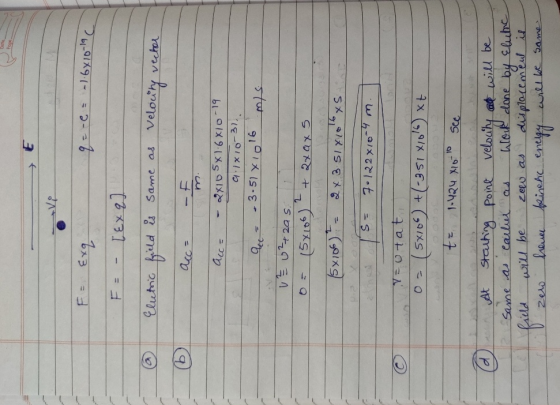 E
→VP
F = E×q    q = -e = -1.6×10⁻¹⁹ C
F = - [E×q]
(a) Electric field is same as velocity vector
(b) acc = -F/m
acc = - 2×10⁵×1.6×10⁻¹⁹ / 9.11×10⁻³¹
acc = -3.51×10¹⁶ m/s
v² = u²+2as
0 = (5×10⁶)² + 2×a×s
(5×10⁶)² = 2×3.51×10¹⁶×s
s = 7.122×10⁻⁴ m
(c) v = u+at
0 = (5×10⁶) + (-3.51×10¹⁶)×t
t = 1.424×10⁻¹⁰ sec
(d) At starting point velocity will be
same as earlier as work done by electric
field will be zero as displacement is
zero hence kinetic energy will be same.